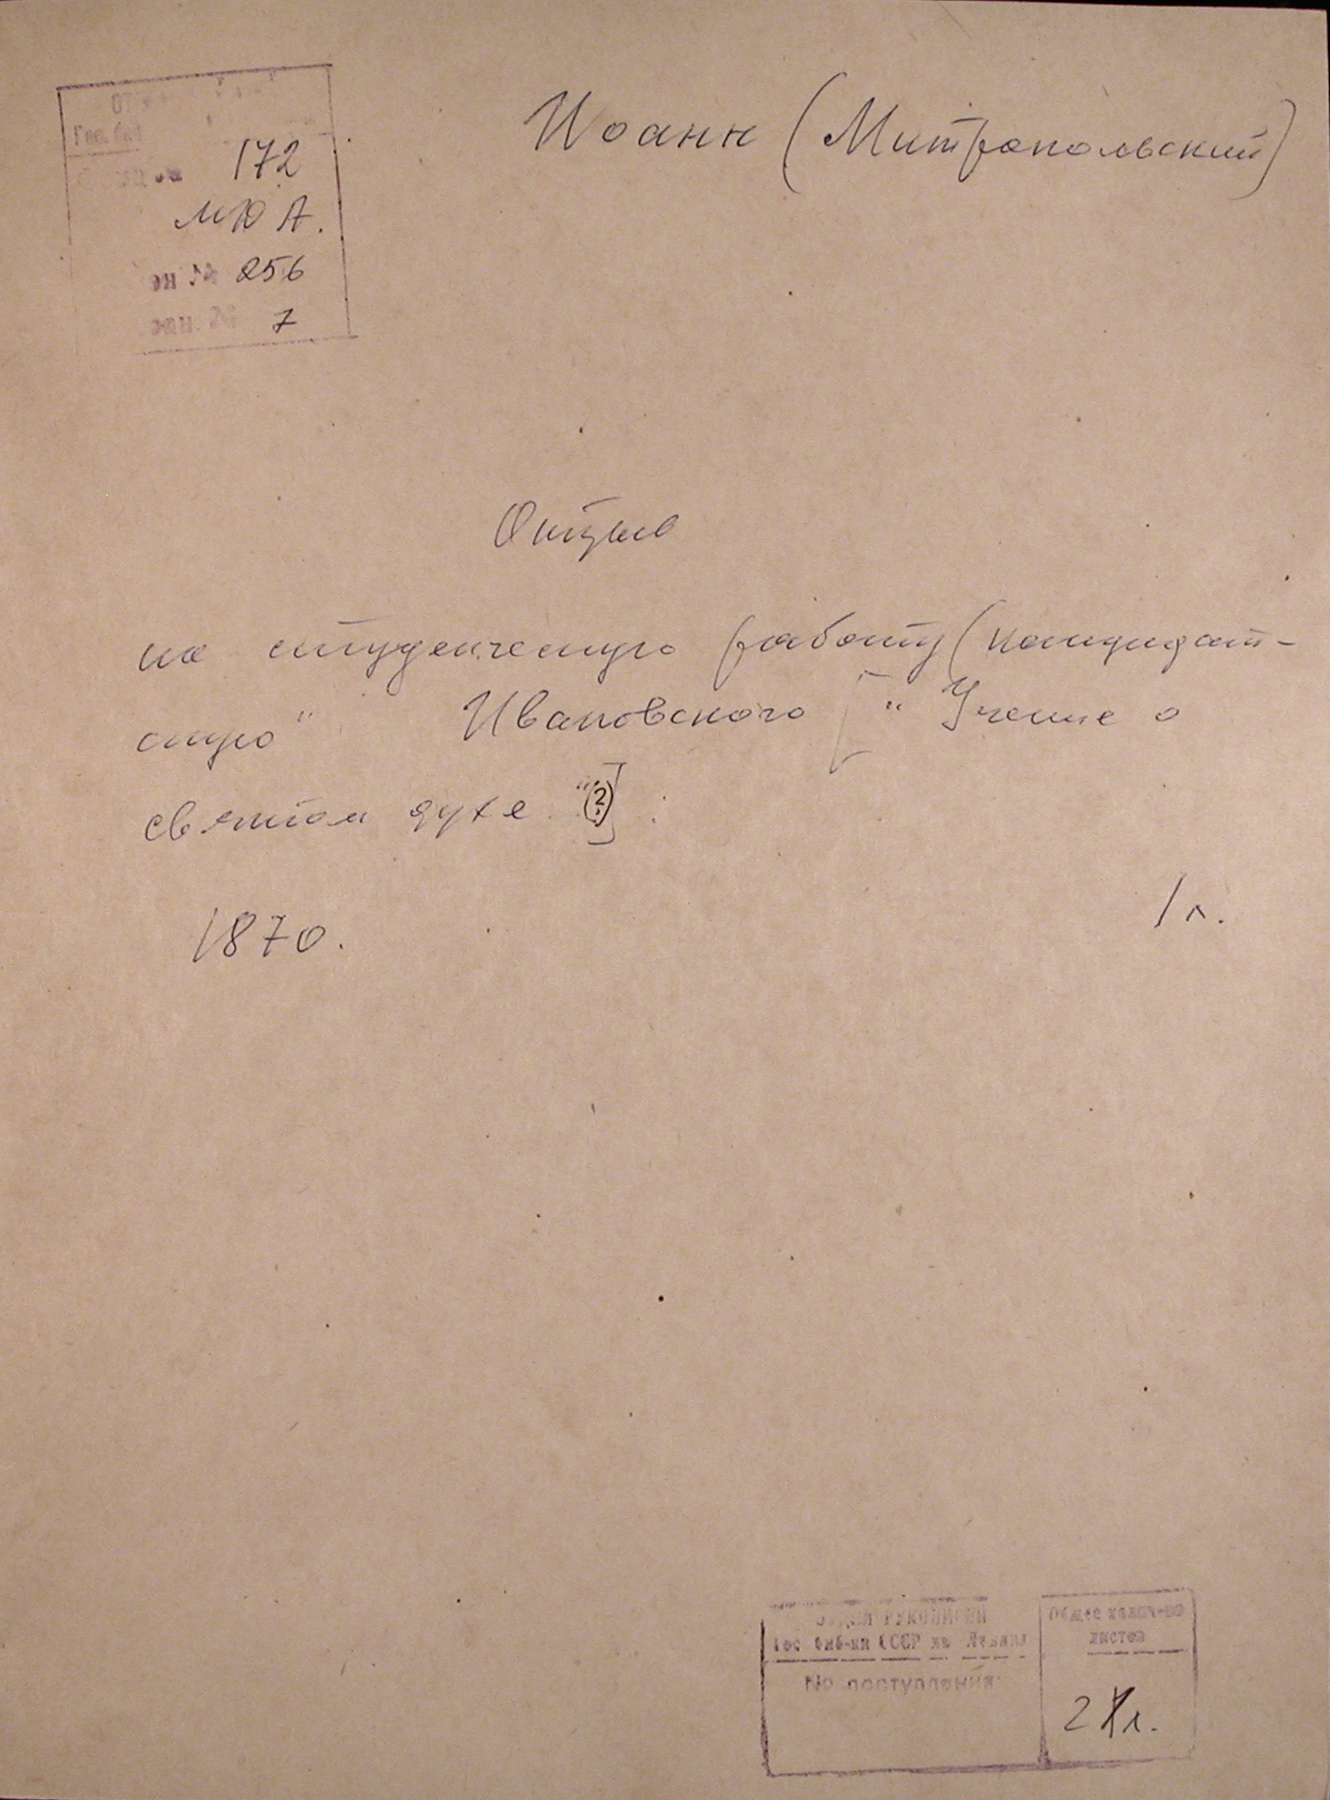 Гос. биб
172
МЮ А.
256
7
Иоанн (Митропольский)
Отзыв
на студенческую работу (кандидат-
скую" Ивановского [ "Учение о
святом духе" (?)] .
1870.
1 л.
ОТДЕЛ РУКОПИСЕЙ
Гос биб-ки СССР им Ленина
№ поступления
Общее колич-во
листов
2 л.